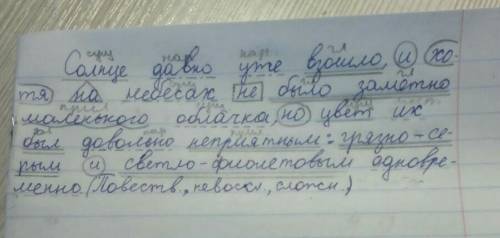 сущ нар нар гл
Солнце давно уже взошло, и хо-
сущ гл
тя на небесах не было заметно
прил сущ сущ
маленького облачка, но цвет их
гл нар прил
был довольно неприятным: грязно-се-
рым и светло-фиолетовым одновре-
менно. (Повеств., невоскл., сложн.)